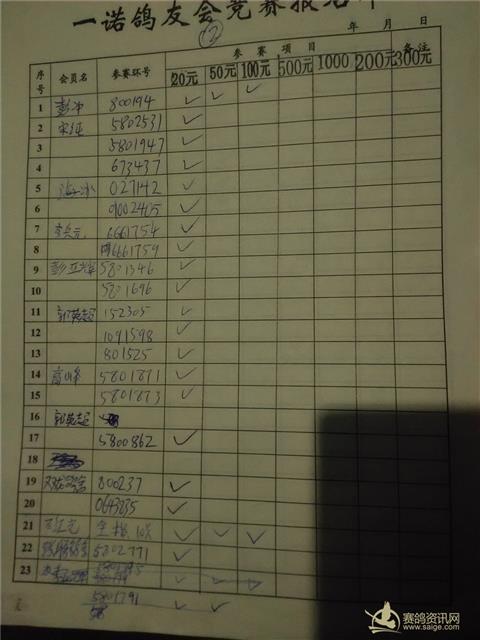 一诺鸽友会竞赛报名单
②
年 月 日
序号 会员名 参赛环号 参赛项目 备注
20元 50元 100元 500元 1000 200元 300元
1 彭冲 800194 ✓ ✓ ✓
2 宋纯 5802531 ✓
3 5801947 ✓
4 673437 ✓
5 027142 ✓
6 9002405 ✓
7 6661754 ✓
8 6661759 ✓
9 彭亚辉 5801346 ✓
10 5801696 ✓
11 郭英超 152305 ✓
12 1091598 ✓
13 801525 ✓
14 高峰 5801871 ✓
15 5801873 ✓
16 郭英超
17 5800862 ✓
18
19 800237 ✓
20 0643235 ✓
21 ✓ ✓ ✓
22 5802771 ✓
23 ✓ ✓ ✓
5801791 ✓ ✓
赛鸽资讯网
www.saige.com